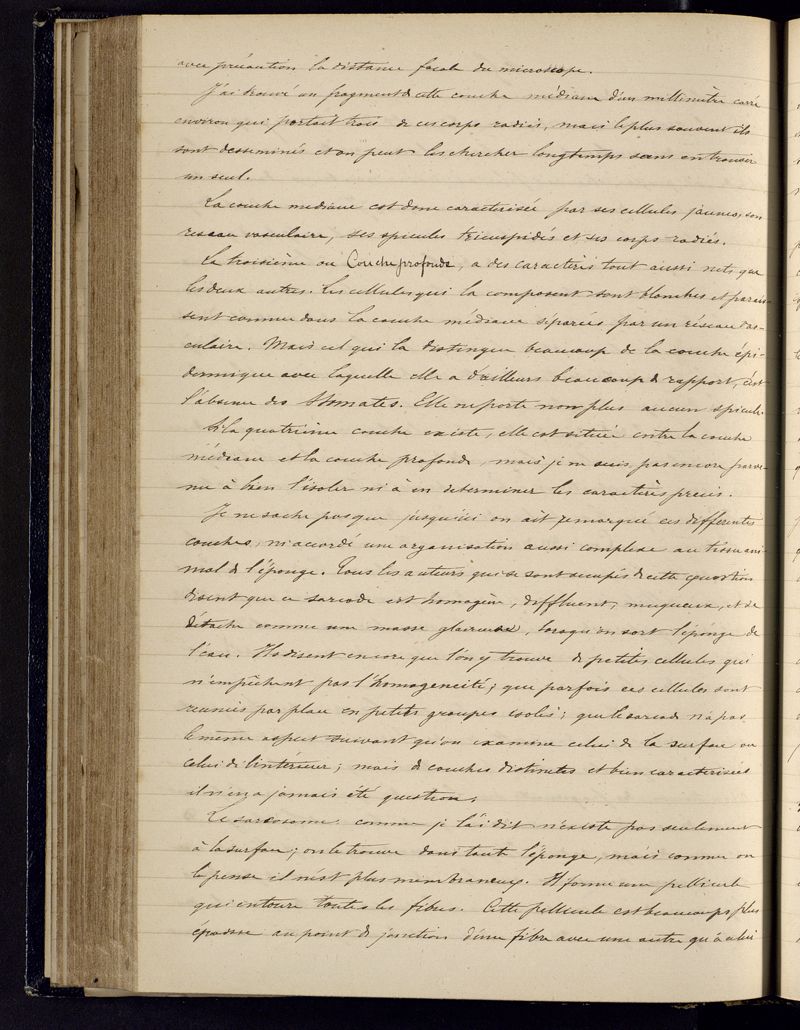 avec précaution la distance focale du microscope.
J'ai trouvé un fragment de cette couche médiane d'un millimètre carré
environ qui portait trois de ces corps radiés, mais le plus souvent ils
sont disseminés et on peut les chercher longtemps sans en trouver
un seul.
La couche mediane est donc caracterisée par ses cellules jaunes, son
reseau vasculaire, ses spicules tricuspidés et ses corps radiés.
La troisième ou Couche profonde, a des caractères tout aussi nets que
les deux autres. Les cellules qui la composent sont blanches et parais-
sent comme dans la couche médiane séparées par un réseau vas-
culaire. Mais ce qui la distingue beaucoup de la couche épi-
dermique avec laquelle elle a d'ailleurs beaucoup de rapport, c'est
l'absence des stomates. Elle ne porte non plus aucun spicule.
Si la quatrième couche existe, elle est située entre la couche
médiane et la couche profonde, mais je ne suis pas encore parve-
nu à bien l'isoler ni à en determiner les caractères precis.
Je ne sache pas que jusqu'ici on ait remarqué ces differentes
couches, ni accordé une organisation aussi complexe au tissu ani-
mal de l'éponge. Tous les auteurs qui se sont occupés de cette question
disent que ce sarcode est homogène, diffluent, muqueux, et se
détache comme une masse glaireuse, lorsqu'on sort l'éponge de
l'eau. Ils disent encore que l'on y trouve de petites cellules qui
n'empêchent pas l'homogeneité; que parfois ces cellules sont
reunies par place en petits groupes isolés; que le sarcode n'a pas
le même aspect suivant qu'on examine celui de la surface ou
celui de l'intérieur; mais de couches distinctes et bien caracterisées
il n'en a jamais été question.
Le sarcosome comme je l'ai dit n'existe pas seulement
à la surface; on le trouve dans toute l'éponge, mais comme on
le pense il n'est plus membraneux. Il forme une pellicule
qui entoure toutes les fibres. Cette pellicule est beaucoup plus
épaisse au point de jonction d'une fibre avec une autre qu'à celui